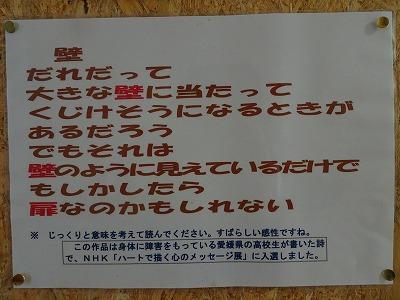 壁
だれだって
大きな壁に当たって
くじけそうになるときが
あるだろう
でもそれは
壁のように見えているだけで
もしかしたら
扉なのかもしれない
※ じっくりと意味を考えて読んでください。すばらしい感性ですね。
この作品は身体に障害をもっている愛媛県の高校生が書いた詩
で、NHK「ハートで描く心のメッセージ展」に入選しました。